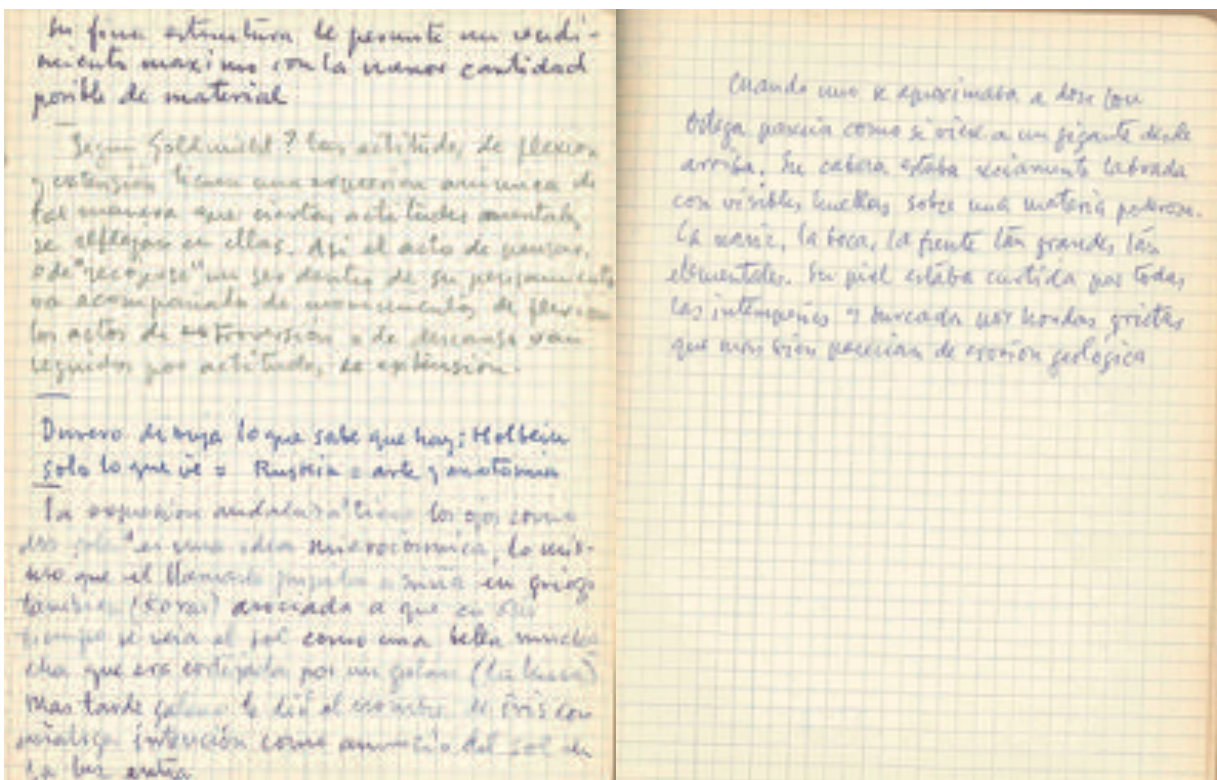 Su fina estructura le permite un rendi-
miento maximo con la menor cantidad
posible de material
Segun Goldscheid? las actitudes de flexion
y extensión tienen una expresion animica de
tal manera que ciertas actitudes mentales
se reflejan en ellas. Asi el acto de pensar,
o de "recogerse" un ser dentro de su pensamiento
va acompañado de movimientos de flexion
los actos de extroversión o de descanso van
seguidos por actitudes de extension.
Durero dibuja lo que sabe que hay; Holbein
solo lo que ve = Ruskin = arte y anatomia
La expresion andaluza "tiene los ojos como
dos soles" es una idea microcosmica, lo mis-
mo que el llamarle pupila o niña en griego
tambien (Koras) asociada a que en
tiempo se veia el sol como una bella mucha
cha que era cortejada por un galan (la luna)
mas tarde galeno le dió el nombre de iris con
intención como anuncio del sol de
la luz entra
Cuando uno se aproximaba a dose con
Ortega parecia como si viese a un gigante desde
arriba. Su cabeza estaba reciamente labrada
con visibles huellas sobre una materia poderosa.
La nariz, la boca, la frente tan grandes, tan
elementales. Su piel estaba curtida por todas
las intemperies y surcada por hondas grietas
que mas bien parecian de erosion geologica